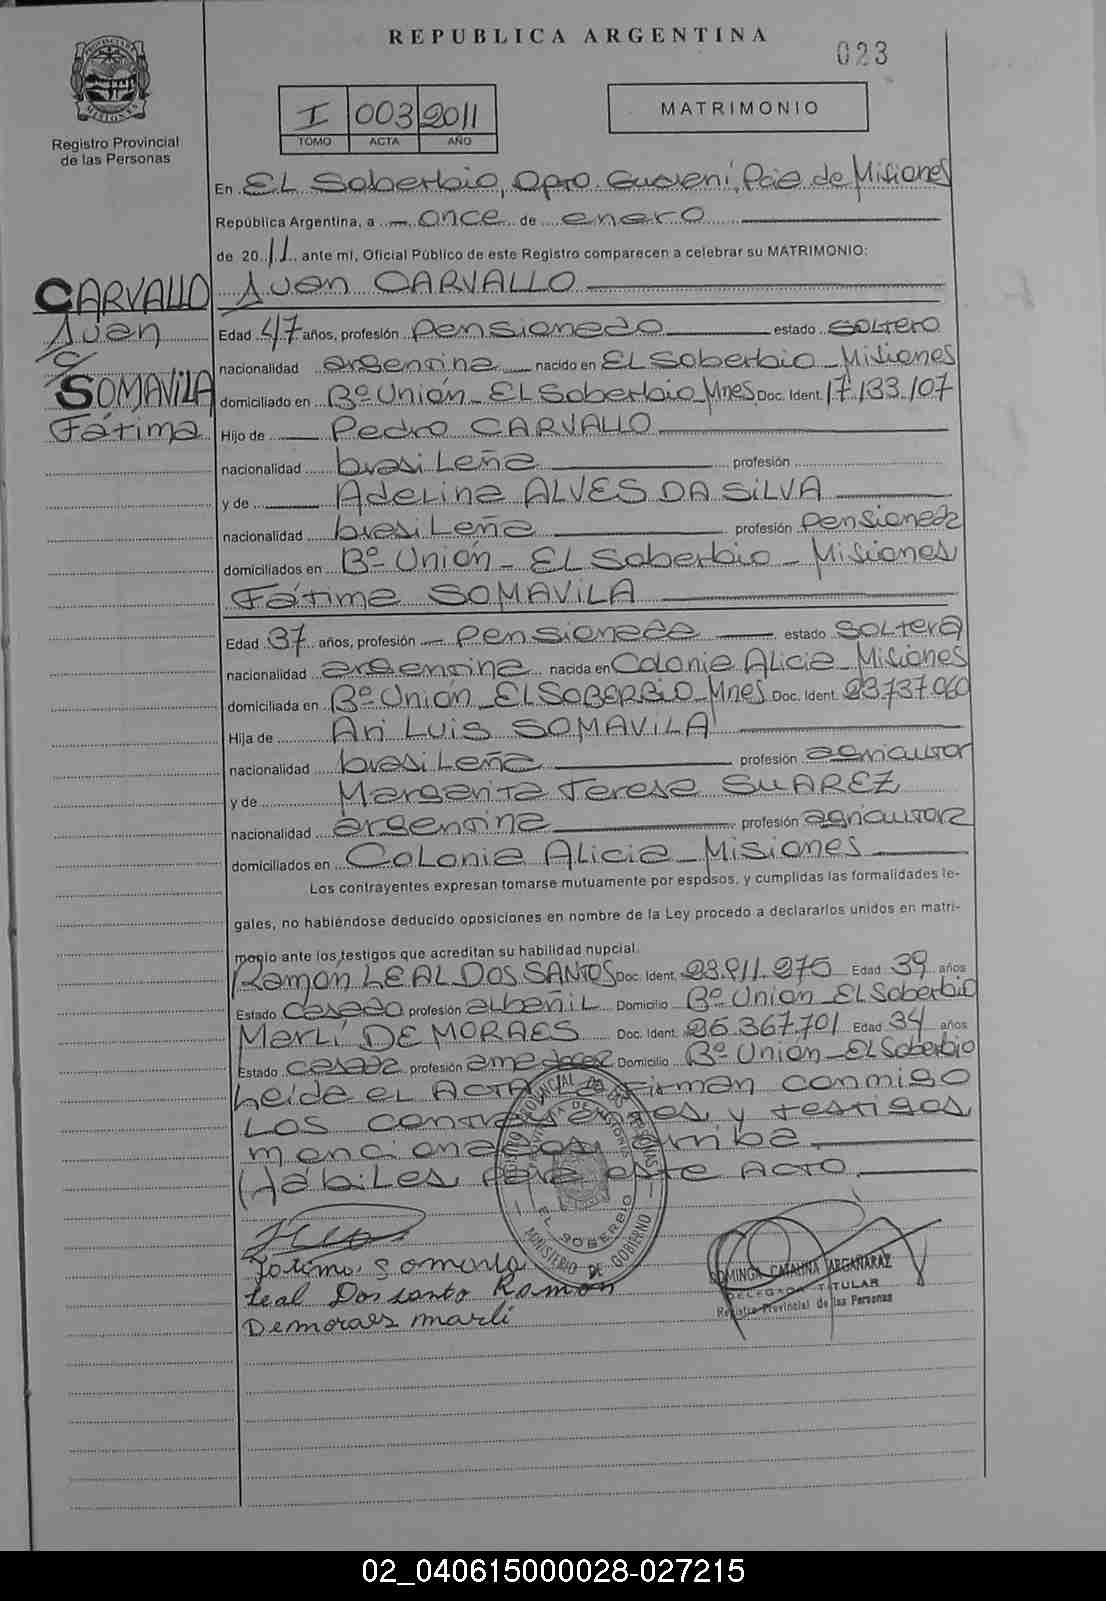 REPUBLICA ARGENTINA
023
PROVINCIA DE MISIONES
Registro Provincial
de las Personas
I 003 2011
TOMO ACTA AÑO
MATRIMONIO
En EL Soberbio, Dpto. Guaraní, Pcia de Misiones
República Argentina, a once de enero
de 2011 ante mí, Oficial Público de este Registro comparecen a celebrar su MATRIMONIO:
CARVALLO
Juan
c/
SOMAVILA
Fátima
Juan CARVALLO
Edad 47 años, profesión pensionado estado soltero
nacionalidad argentina nacido en EL Soberbio - Misiones
domiciliado en Bº Unión - EL Soberbio - Mnes Doc. Ident. 17.133.107
Hijo de Pedro CARVALLO
nacionalidad brasileña profesión
y de Adelina ALVES DA SILVA
nacionalidad brasileña profesión pensionada
domiciliados en Bº Unión - EL Soberbio - Misiones
Fátima SOMAVILA
Edad 37 años, profesión pensionada estado soltera
nacionalidad argentina nacida en Colonia Alicia - Misiones
domiciliada en Bº Unión - EL SOBERBIO - Mnes Doc. Ident. 23.737.060
Hija de Ari Luis SOMAVILA
nacionalidad brasileña profesión agricultor
y de Margarita Teresa SUAREZ
nacionalidad argentina profesión agricultora
domiciliados en Colonia Alicia - Misiones
Los contrayentes expresan tomarse mutuamente por esposos, y cumplidas las formalidades le-
gales, no habiéndose deducido oposiciones en nombre de la Ley procedo a declararlos unidos en matri-
monio ante los testigos que acreditan su habilidad nupcial.
Ramon LEAL DOS SANTOS Doc. Ident. 23.911.275 Edad 39 años
Estado casado profesión albañil Domicilio Bº Unión - EL Soberbio
Marlí DE MORAES Doc. Ident. 26.367.701 Edad 34 años
Estado casada profesión ama de casa Domicilio Bº Unión - EL Soberbio
Leída el ACTA La Firman conmigo
Los contrayentes y testigos
mencionados arriba
Hábiles para este Acto
REGISTRO PROVINCIAL DE LAS PERSONAS
PROVINCIA DE MISIONES
EL SOBERBIO
MINISTERIO DE GOBIERNO
Fátima Somavila
Leal Dos santo Ramon
Demoraes marli
DOMINGA CATALINA ARGAÑARAZ
DELEGADA TITULAR
Registro Provincial de las Personas
02_040615000028-027215